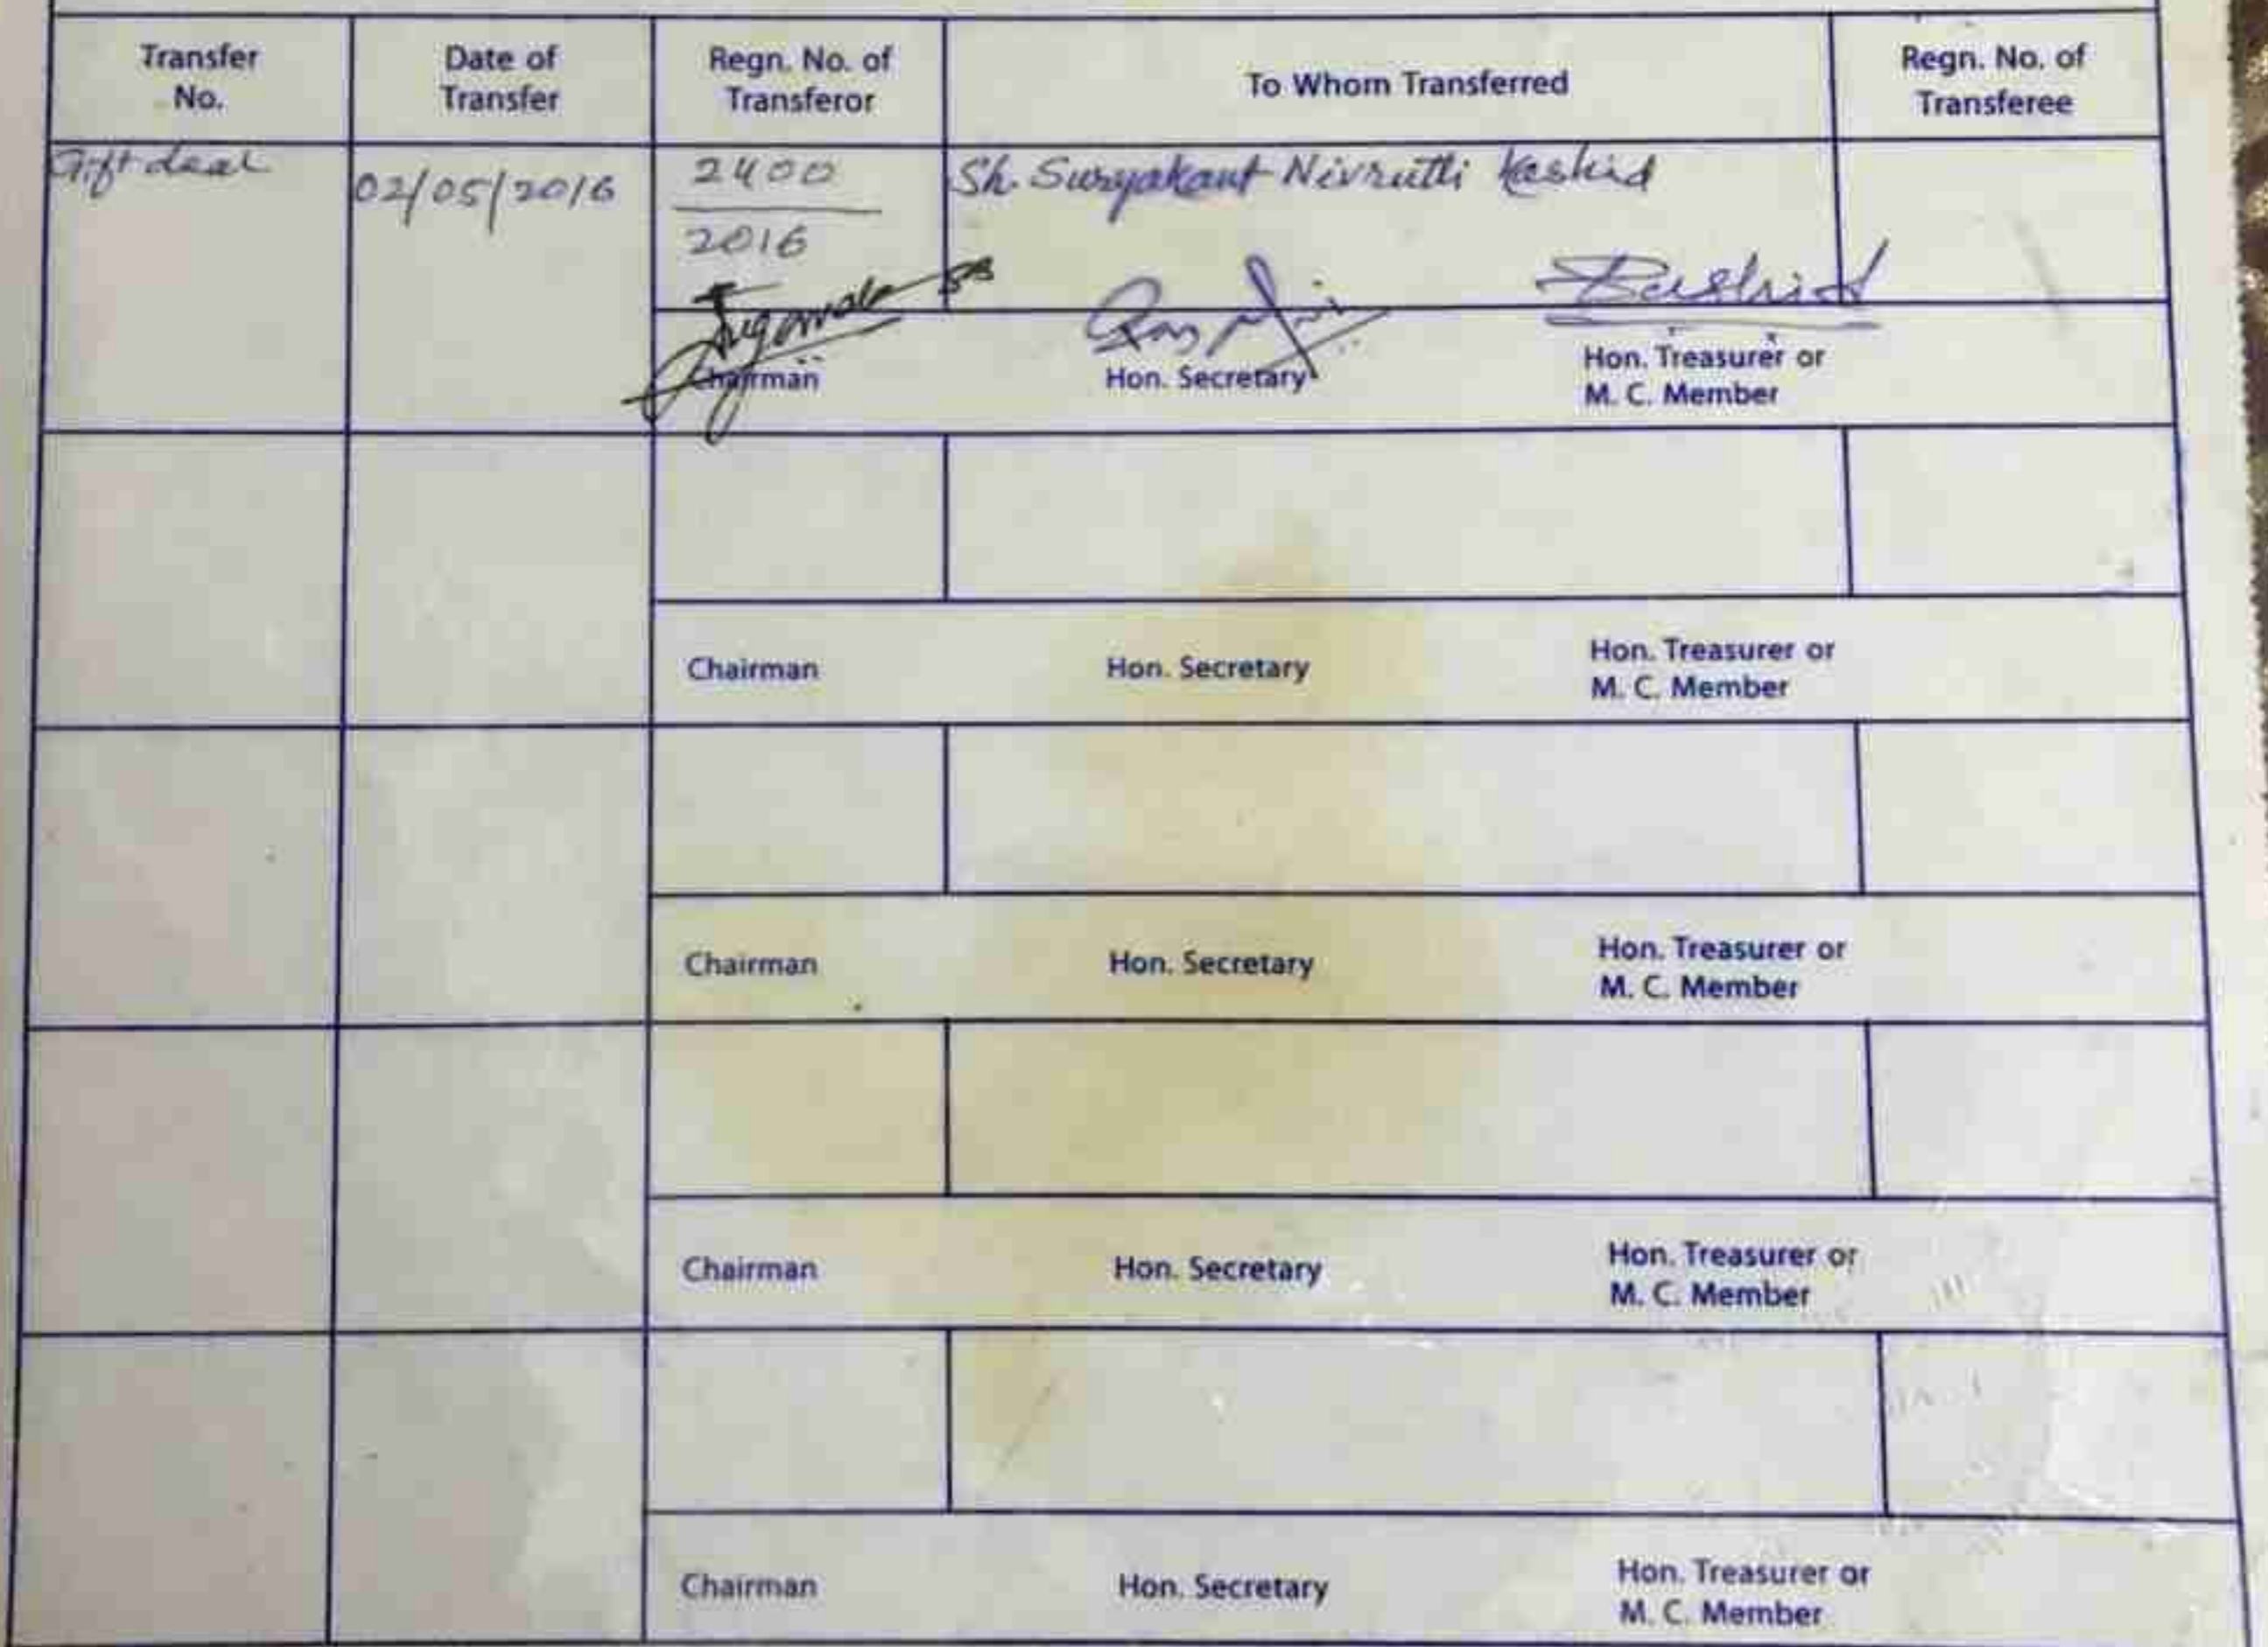 Transfer No.
Date of Transfer
Regn. No. of Transferor
To Whom Transferred
Regn. No. of Transferee
Gift deal
02/05/2016
2400
2016
Sh. Suryakant Nivrutti Kashid
Chairman
Hon. Secretary
Hon. Treasurer or
M. C. Member
Chairman
Hon. Secretary
Hon. Treasurer or
M. C. Member
Chairman
Hon. Secretary
Hon. Treasurer or
M. C. Member
Chairman
Hon. Secretary
Hon. Treasurer or
M. C. Member
Chairman
Hon. Secretary
Hon. Treasurer or
M. C. Member